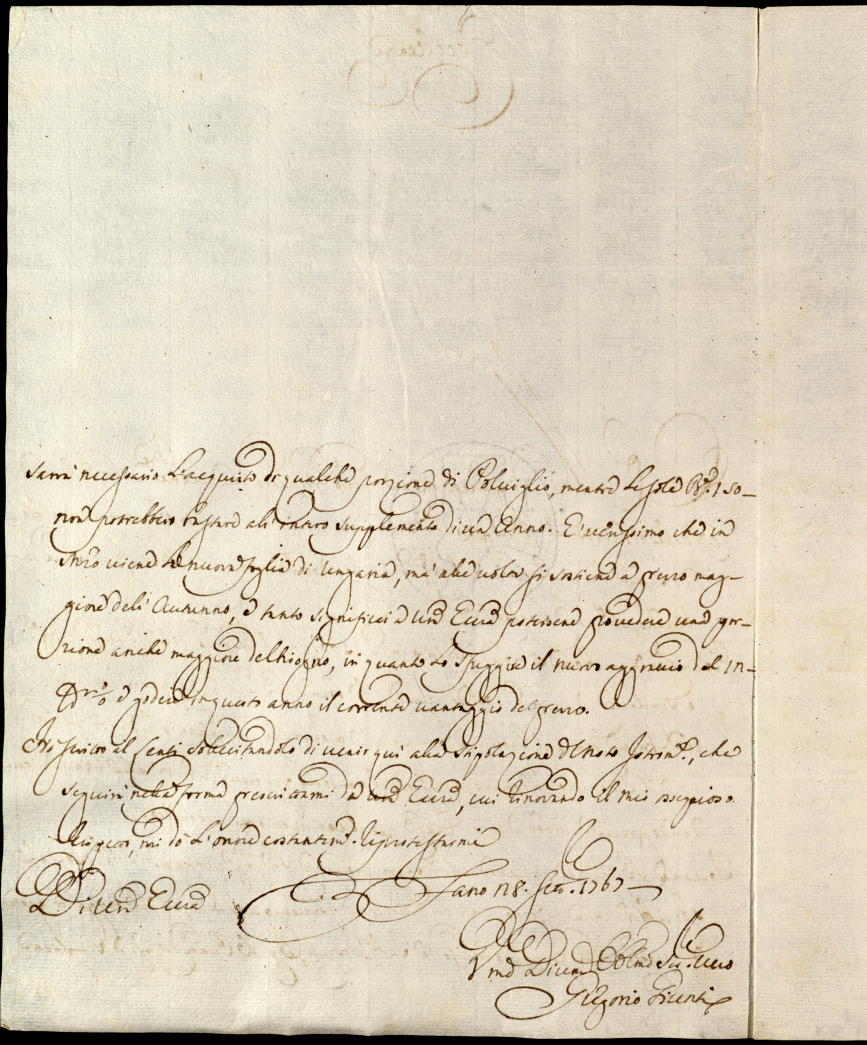 sarà necessario L'acquisto di qualche porzione di Polviglio, mentre Le sole 150
non potrebbero bastare all'intero supplemento di un Anno. E' verissimo che in
viene la nuova foglia di Ungaria, ma alle volte si sostiene a prezzo mag-
giore dell'Autunno, e tanto significai a Vra Eccza potersene provedere una por-
zione anche maggiore del bisogno, in quanto Lo sfuggire il nuovo aggravio del
e godere in questo anno il corrente vantaggio del prezzo.
Ho scritto al Censi sollecitandolo di venir quì alla stipolazione del noto Istromto., che
seguirà nella forma prescrittami da Vra Eccza, cui rinovando il mio ossequioso
rispetto, mi dò L'onore costantemte. riprotestarmi
Di Vra Eccza
Fano 18. 1767
Vmo Divmo Obbmo Servre Vero
Gregorio